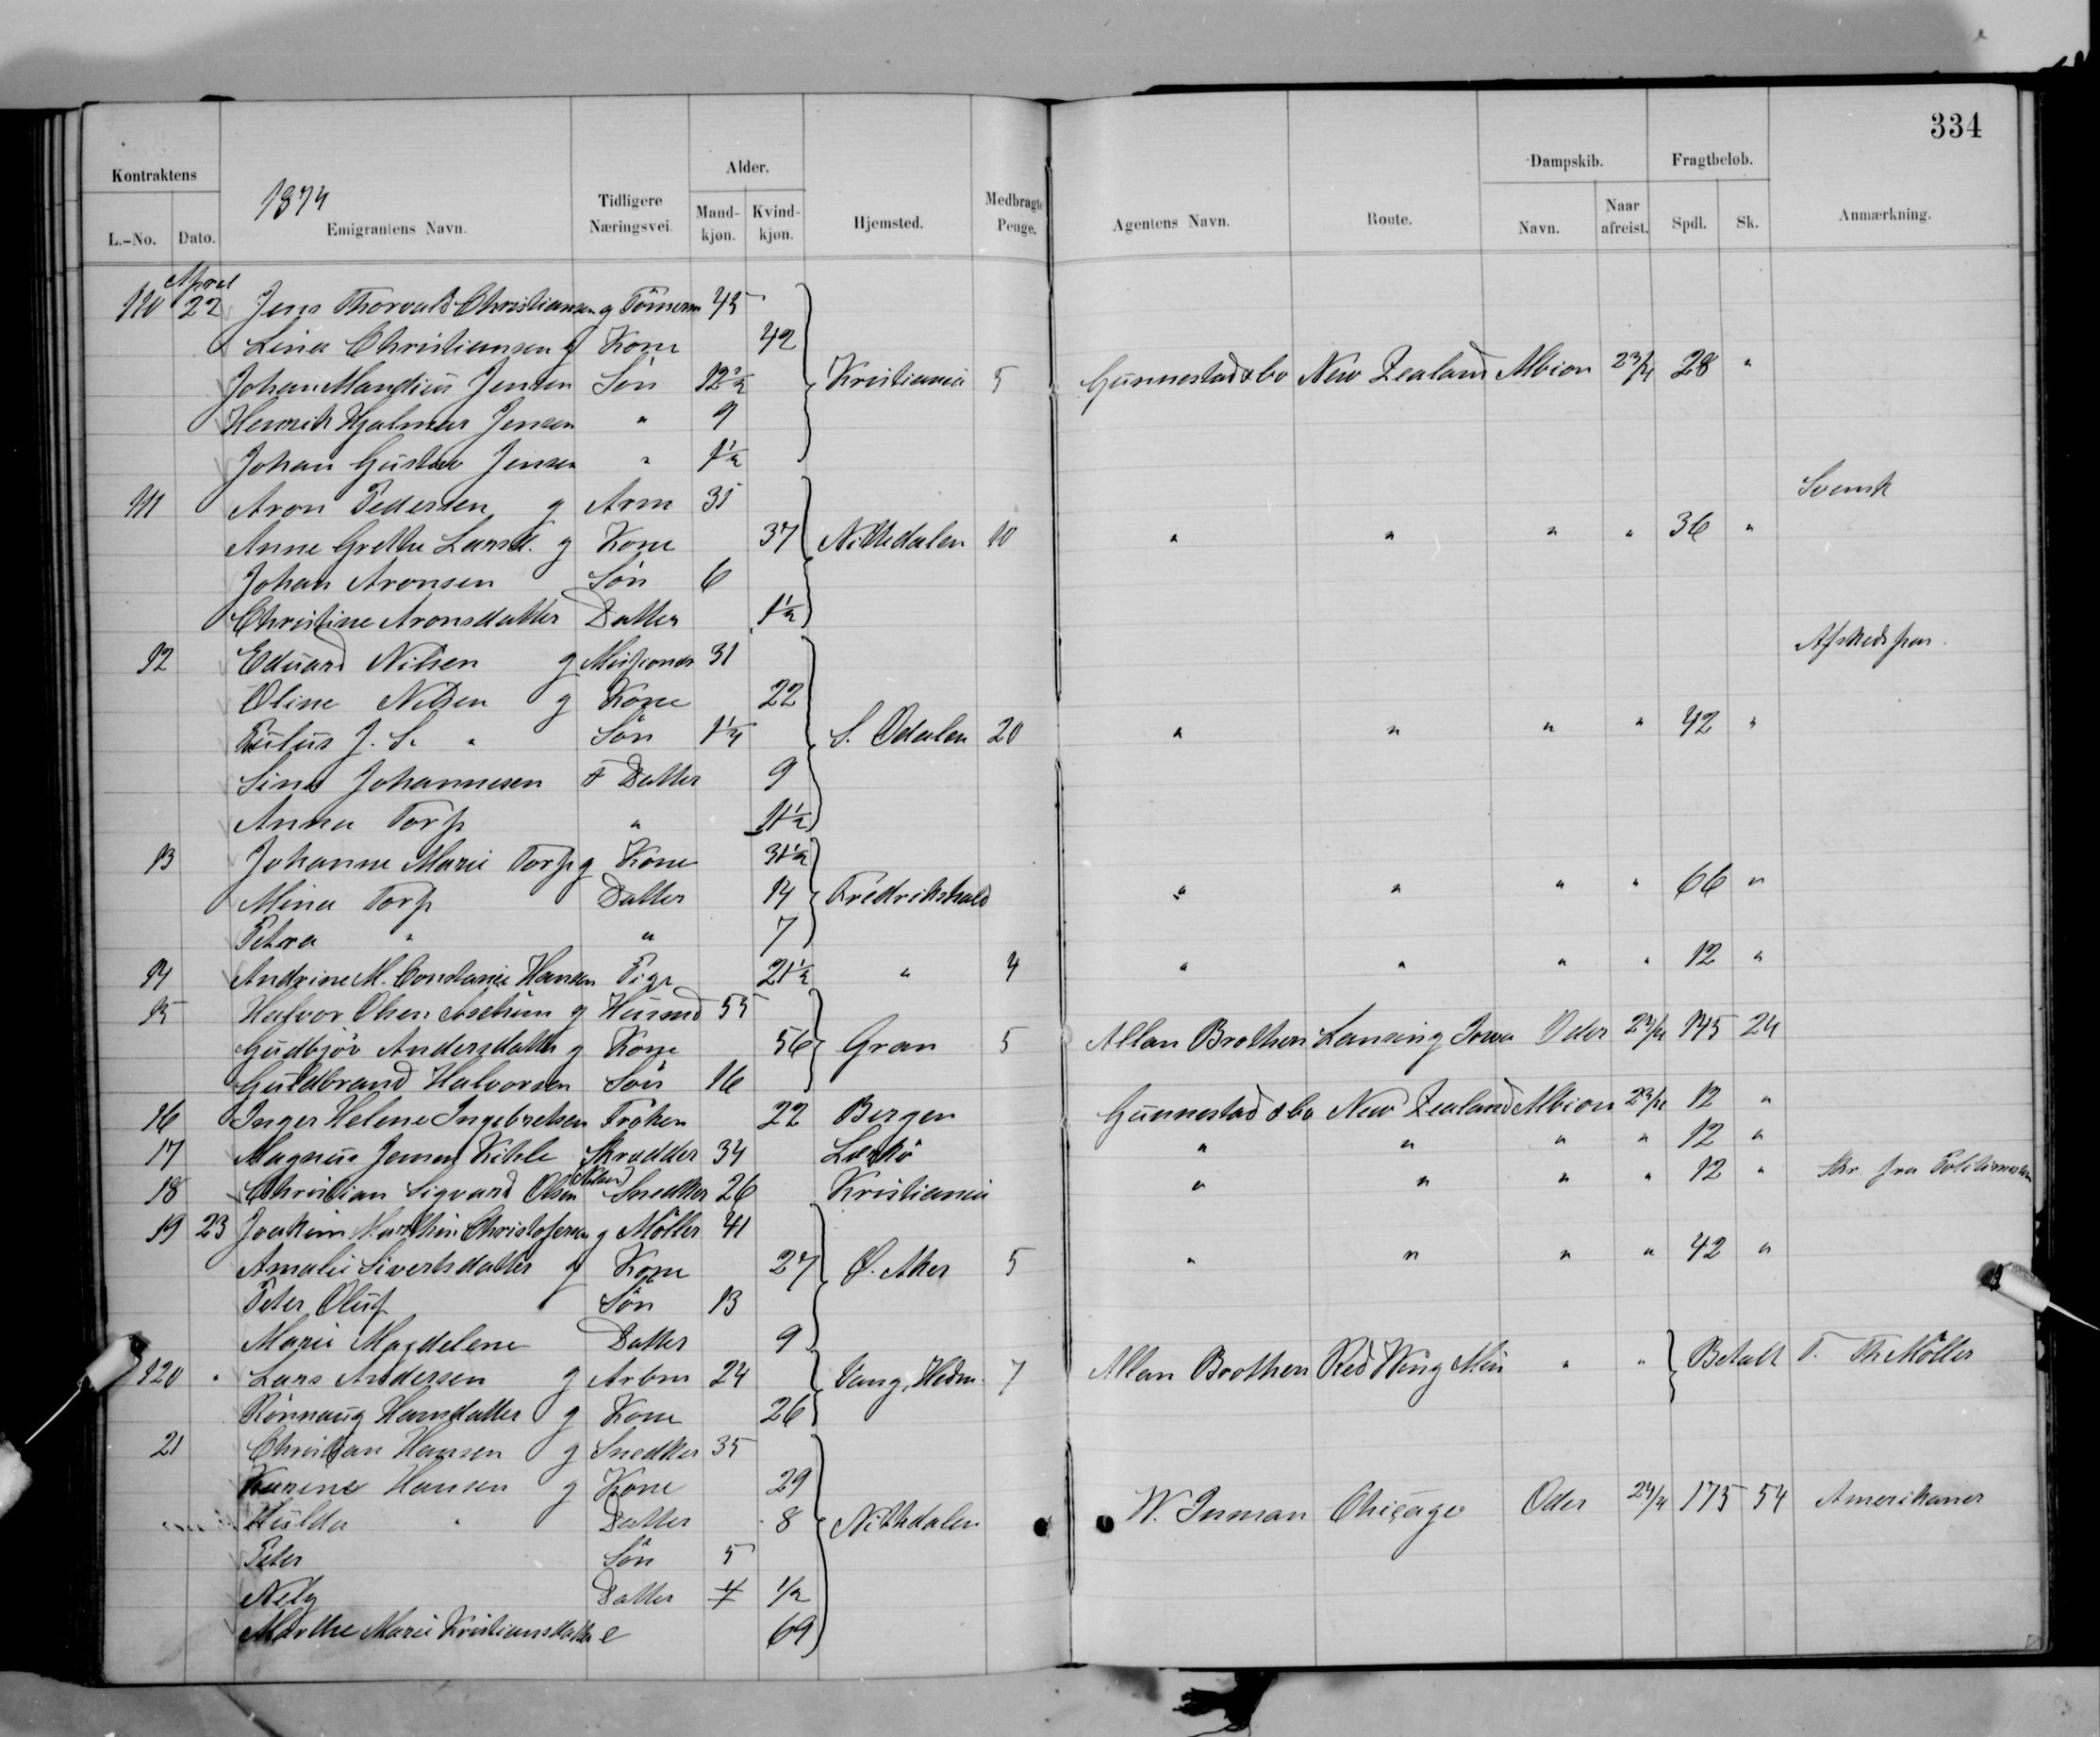 334
Kontraktens
Alder.
Dampskib.
Fragtbeløb.
L.-No. Dato. 1874 Emigrantens Navn. Tidligere Næringsvei. Mand-kjøn. Kvind-kjøn. Hjemsted. Medbragte Penge. Agentens Navn. Route. Navn. Naar afreist. Spdl. Sk. Anmærkning.
April
110 22 Jens Thorvald Christiansen g Tømerm 45
Lina Christiansen g Kone 42
Johan Mandius Jensen Søn 12½ Kristiania 5 Gunnestad & Co New Zealand Albion 23/4 28 "
Henrik Hjalmar Jensen " 9
Johan Gustav Jensen " 1½
111 Aron Pedersen g Arm 35 Svensk
Anne Grethe Larsd. g Kone 37 Nittedalen 10 " " " " 36 "
Johan Aronsen Søn 6
Christine Aronsdatter Datter 1½
12 Eduard Nilsen g 31
Oline Nilsen g Kone 22
J. S. " Søn 1¼ S. Odalen 20 " " " " 42 "
Sina Johannesen Datter 9
Anna Torp " 11½
13 Johanne Marie Torp g Kone 31½
Mina Torp Datter 14 Fredrikshald " " " " 66 "
Petra " " 7
14 Andrine M. Constanie Hansen Pige 21½ " 4 " " " " 12 "
15 Halvor Olsen g Husmd 55
Gudbjør Andersdatter g Kone 56 Gran 5 Allan Brothers Lansing Iowa Oder 24/4 145 24
Guldbrand Halvorsen Søn 16
16 Inger Helene Ingebretsen Frøken 22 Bergen Gunnestad & Co New Zealand Albion 23/4 12 "
17 Magnus Jensen Kihle Skrædder 34 Lekø " " " " 12 "
18 Christian Sigvard Olsen Snedker 26 Kristiania " " " " 12 "
19 23 Joakim Marthin Christofersen g Møller 41
Amalie Sivertsdatter g Kone 27 Ø. Aker 5 " " " " 42 "
Peter Oluf Søn 13
Marie Magdelene Datter 9
120 " Lars Andersen g Arbm 24 Vang, Hedm. 7 Allan Brothers Red Wing Min " " Betalt T. Th Møller
Rønnaug Hansdatter g Kone 26
21 Christian Hansen g Snedker 35
Karine Hansen g Kone 29
Hulda " Datter 8 Nittedalen W. Inman Chicago Oder 24/4 175 54 Amerikaner
Peter Søn 5
Nely Datter ½
Marthe Marie Kristiansdatter e 69